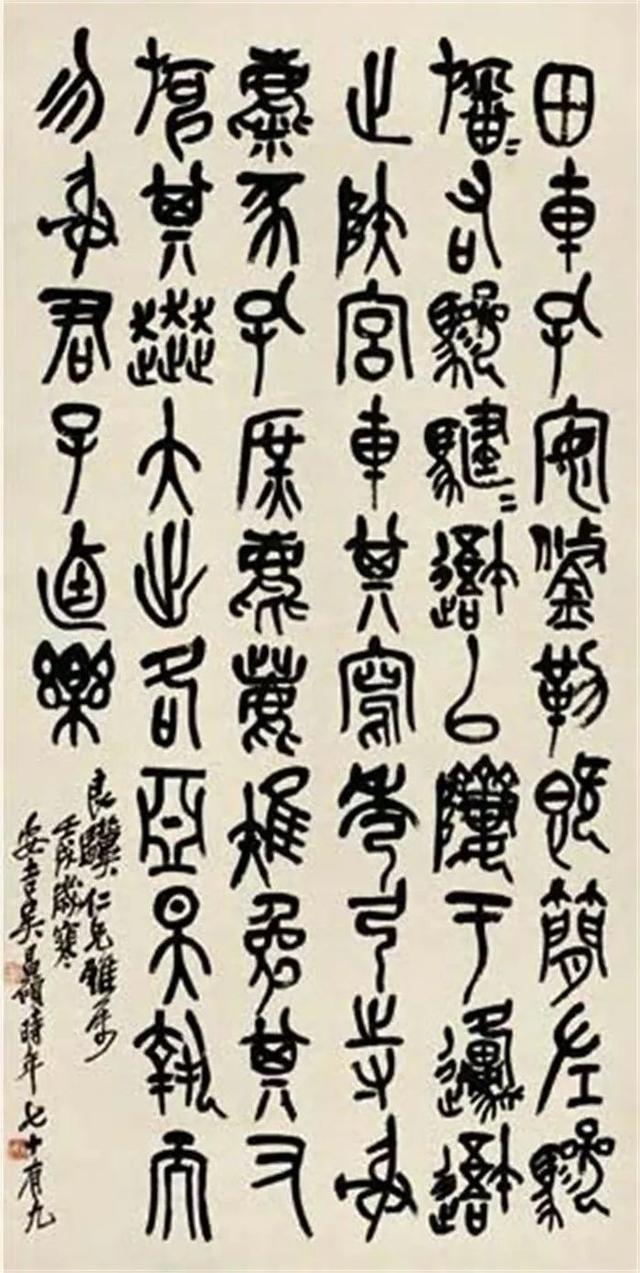 田車孔安鋚勒既簡左驂
旛=右驂騝=𨖍以隮于邍𨖍
止陕宮車其寫秀弓寺射
麋豕孔庶麀鹿雉兔其又
其奔大出各亞昊執而
勿射君子逌樂
良驥仁兄雅屬
壬戌歲寒
安吉吳昌碩時年七十有九